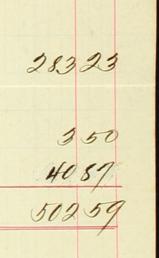 283 23
3 50
40 87
502 59